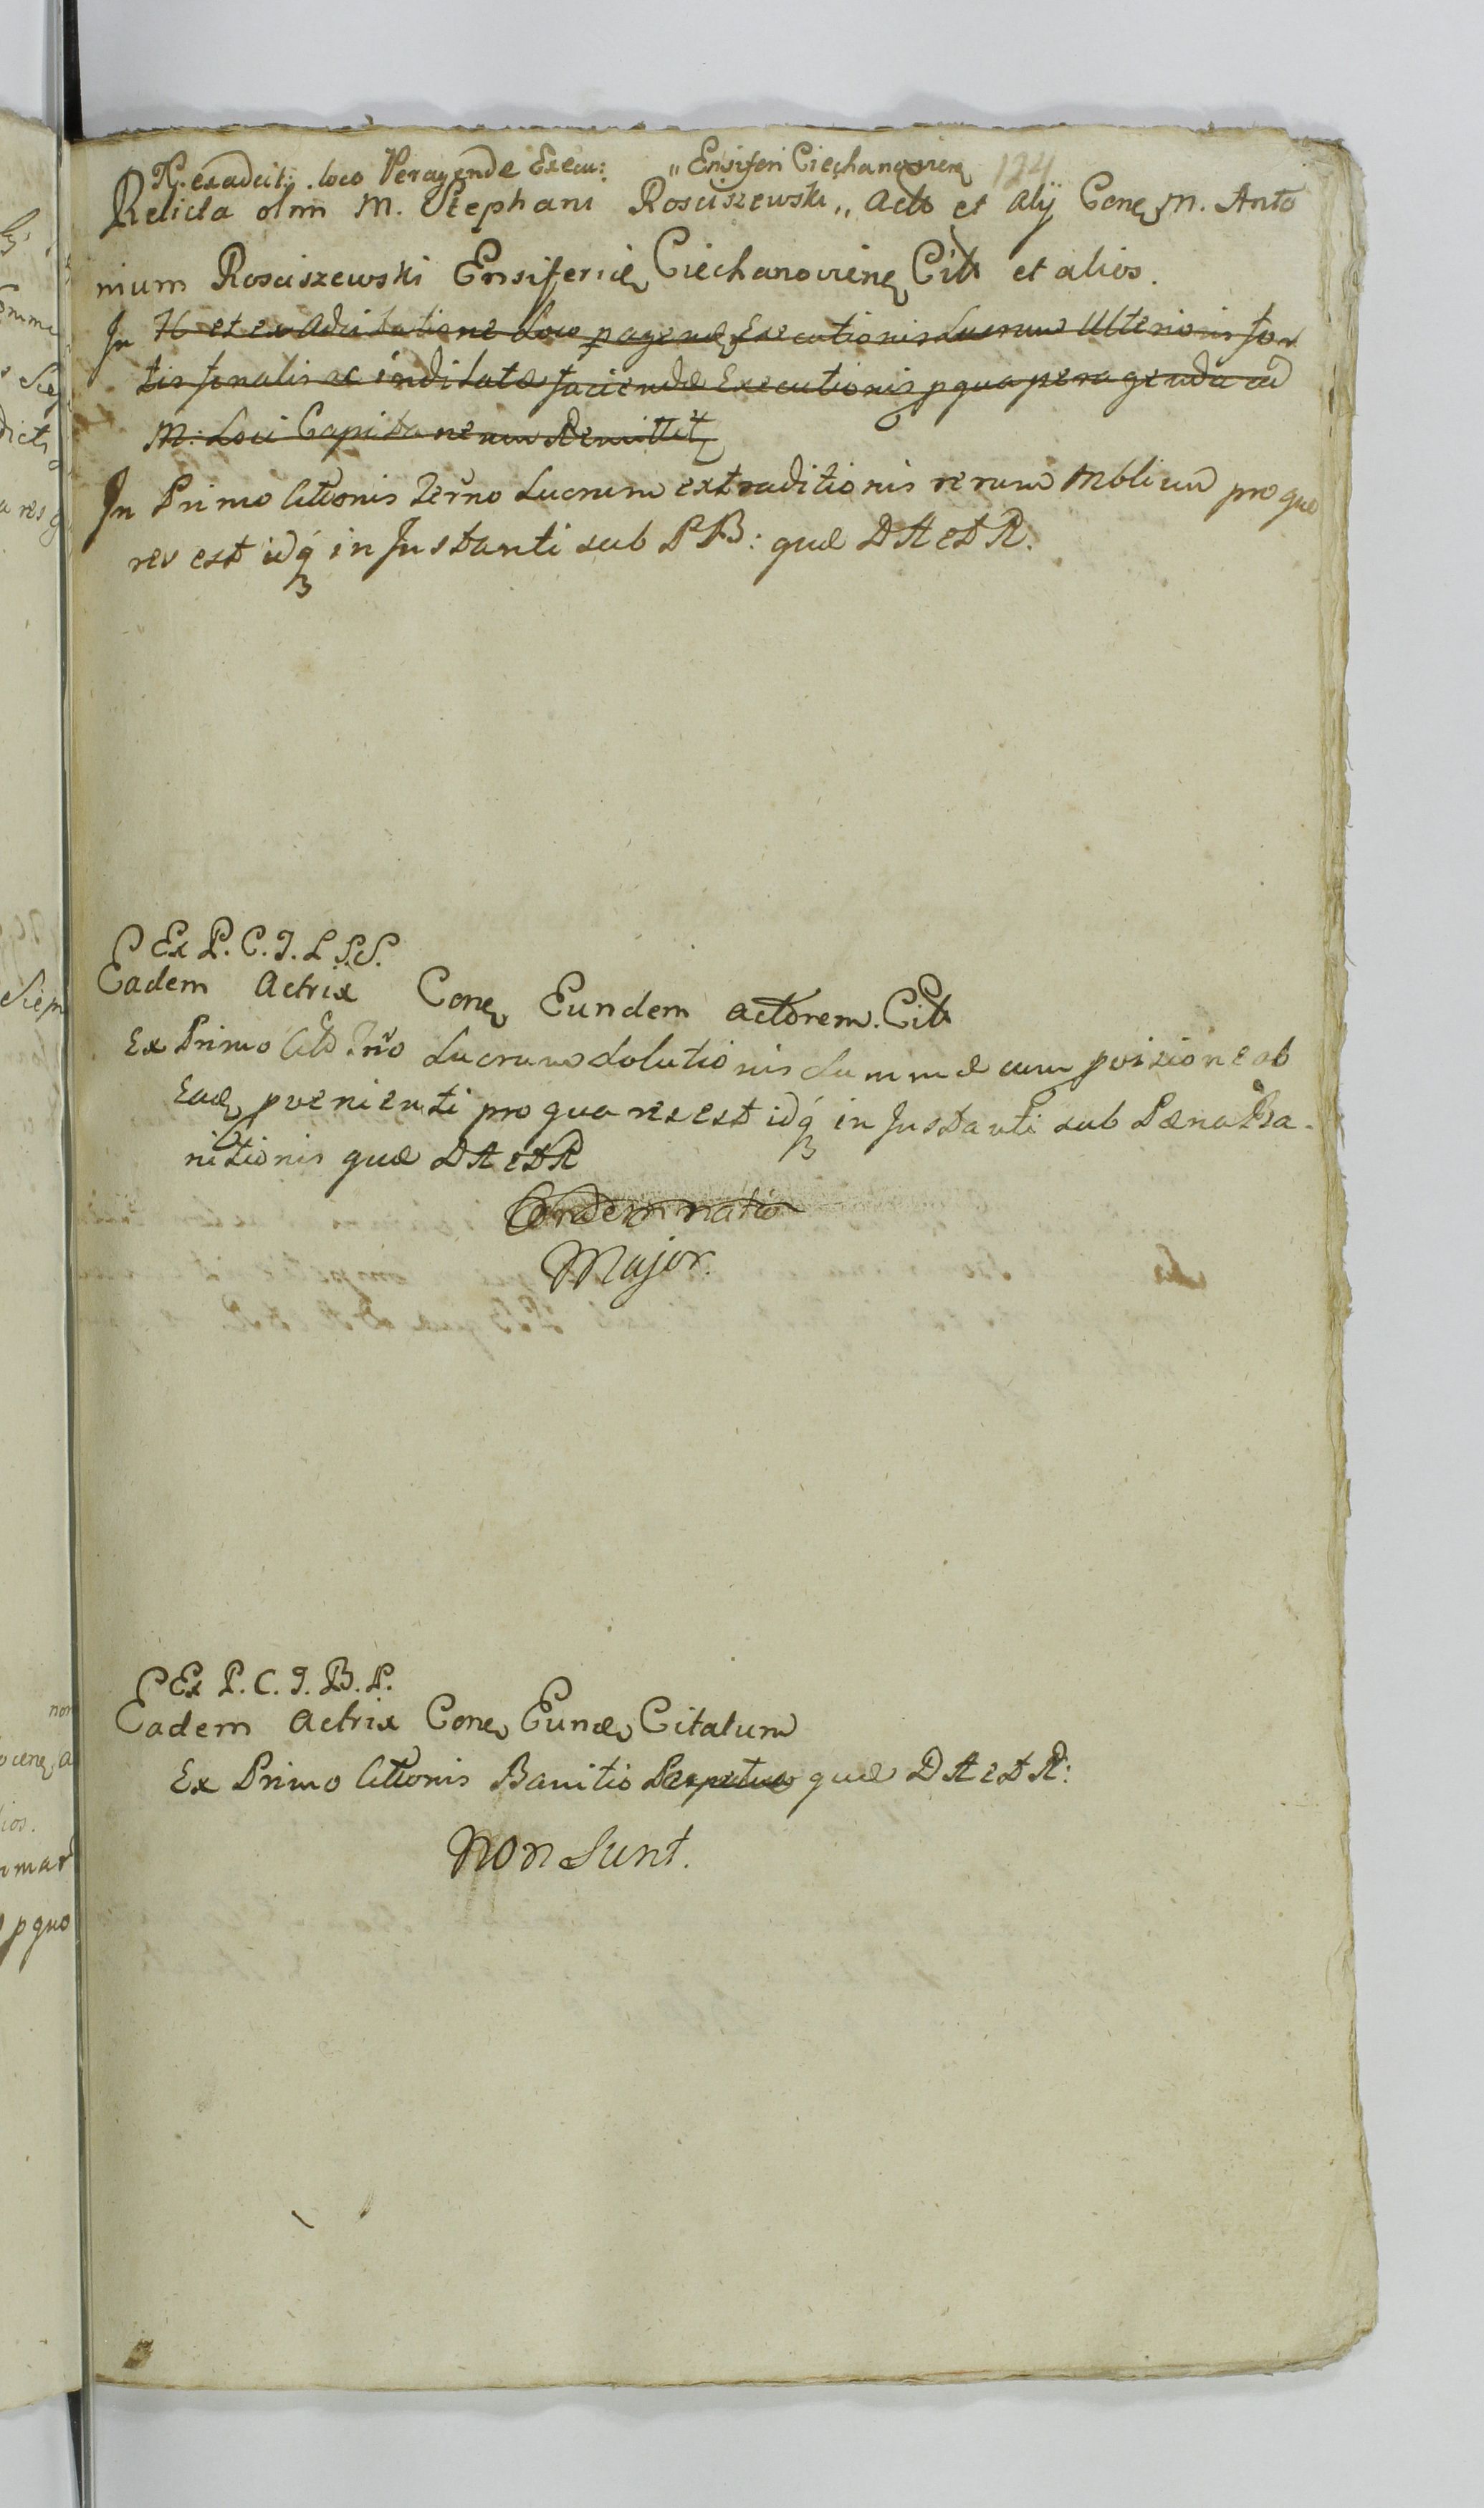 H. ex adcit: loco Peragende Execu: „Ensiferi Ciechanovien 124
Relicta olim M. Stephani Rosciszewski „ Acto et Alÿ Cone M. Anto
nium Rosciszewski Ensiferiæ Ciechanoviene Citt et alios.
In H et ex Adcitatione Loco pagende Executionis Lucrum Ulterioris for
tis fenalis ac inditatæ faciendæ Executionis p qua peragenda ad
M. Loci Capitaneum Remittit
In Primo Cittionis Terno Lucrum extraditionis rerum Mblium pro quo
res est idq in Instanti sub P B: quæ DA et DR.
C Ex P. C. J. L S.S.
Eadem Actrix Cone Eundem actorem. Citt
Ex Primo Citt. Trno Lucrum Solutionis Summæ cum pvisione ab
Eade pvenienti pro qua res est idq in Instanti sub Pæna Ba-
nitionis quæ DA et DR
Condemnatio
Major.
C Ex P. C. J. B. P.
Eadem Actrix Cone Eunde Citatum
Ex Primo Cittionis Banitio Perpetua quæ DA et DR:
Non Sunt.